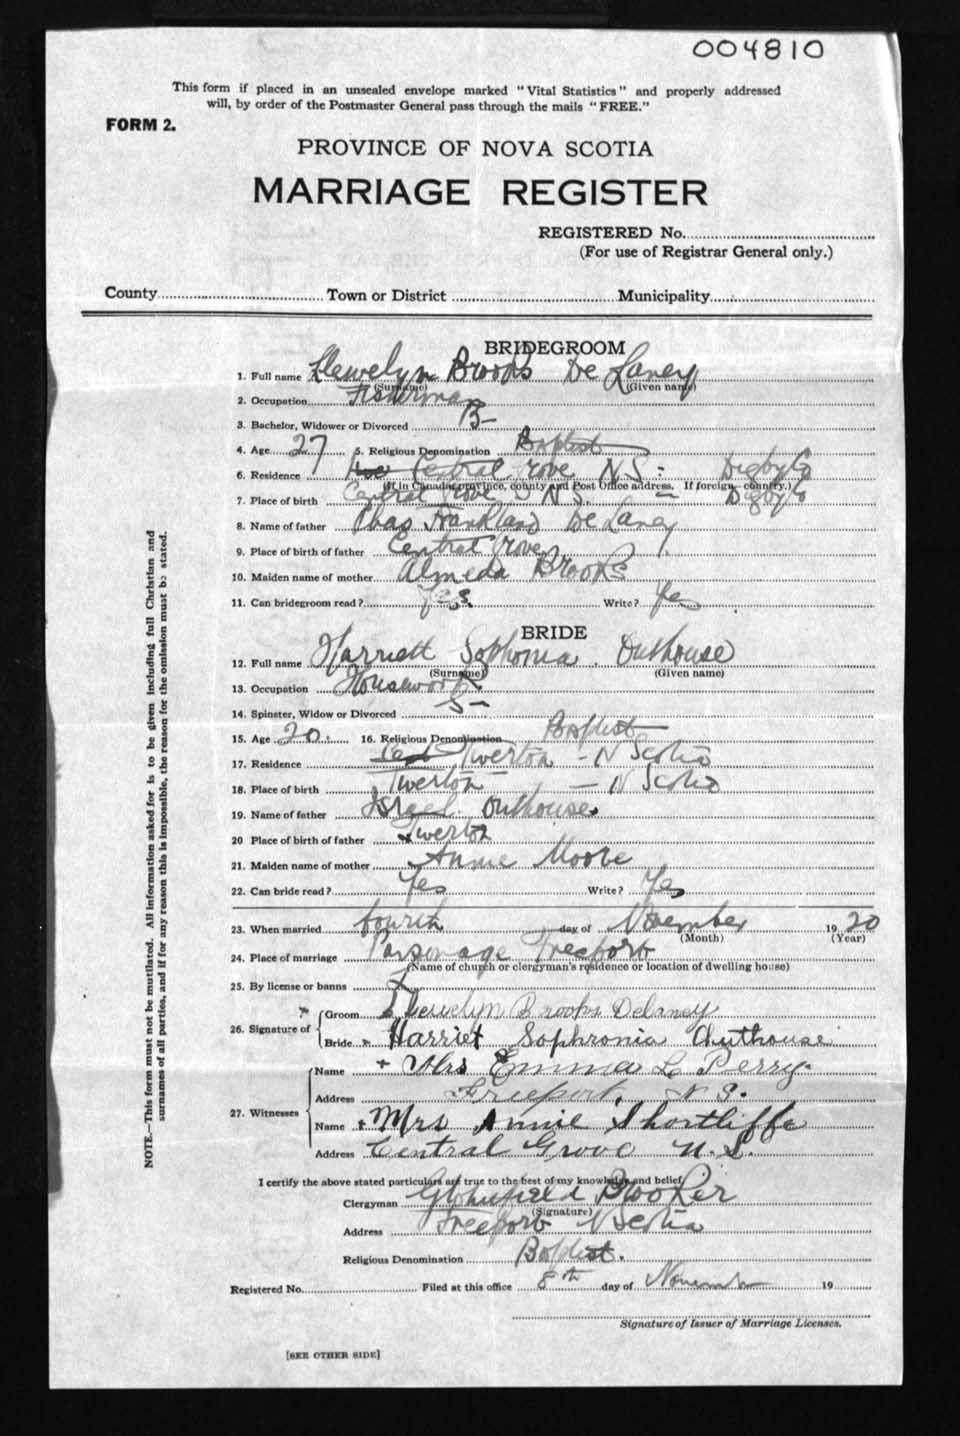 004810
This form if placed in an unsealed envelope marked "Vital Statistics" and properly addressed
will, by order of the Postmaster General pass through the mails "FREE."
FORM 2.
PROVINCE OF NOVA SCOTIA
MARRIAGE REGISTER
REGISTERED No.
(For use of Registrar General only.)
County Town or District Municipality
BRIDEGROOM
1. Full name Llewelyn Brooks De Laney
(Surname) (Given name)
2. Occupation Fisherman
3. Bachelor, Widower or Divorced B-
4. Age 27 5. Religious Denomination Baptist
6. Residence Central Grove N.S. Digby Co
(If in Canada, province, county and Post Office address. If foreign, country.)
7. Place of birth Central Grove N.S. Digby Co
8. Name of father Chas Frankland De Laney
9. Place of birth of father Central Grove
10. Maiden name of mother Almeda Brooks
11. Can bridegroom read? Yes. Write? Yes
BRIDE
12. Full name Harriett Sophonia Outhouse
(Surname) (Given name)
13. Occupation Housework.
14. Spinster, Widow or Divorced S-
15. Age 20. 16. Religious Denomination Baptist
17. Residence Tiverton - N Scotia
18. Place of birth Tiverton - N Scotia
19. Name of father Israel Outhouse
20 Place of birth of father Tiverton
21. Maiden name of mother Annie Moore
22. Can bride read? Yes Write? Yes
23. When married fourth day of November 1920
(Month) (Year)
24. Place of marriage Parsonage Freeport
(Name of church or clergyman's residence or location of dwelling house)
25. By license or banns L
26. Signature of Groom Llewelyn Brooks Delaney
Bride Harriet Sophronia Outhouse
27. Witnesses Name Mrs Emma L Perry
Address Freeport, N S.
Name Mrs Annie Shortliffe
Address Central Grove N.S.
I certify the above stated particulars are true to the best of my knowledge and belief.
Clergyman Brooker
(Signature)
Address Freeport N Scotia
Religious Denomination Baptist.
Registered No. Filed at this office 8th day of November 19
Signature of Issuer of Marriage Licenses.
[SEE OTHER SIDE]
NOTE.—This form must not be mutilated. All information asked for is to be given including full Christian and
surnames of all parties, and if for any reason this is impossible, the reason for the omission must be stated.